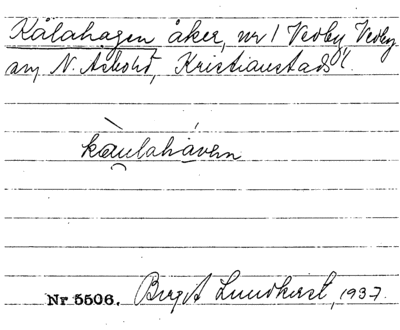 Kålahagen åker, nr 1 Vedby, Vedby
sn, N. Åsbohd, Kristianstads l.
kàulahávɐn
Nr 5506. Birgit Lundkvist, 1937.